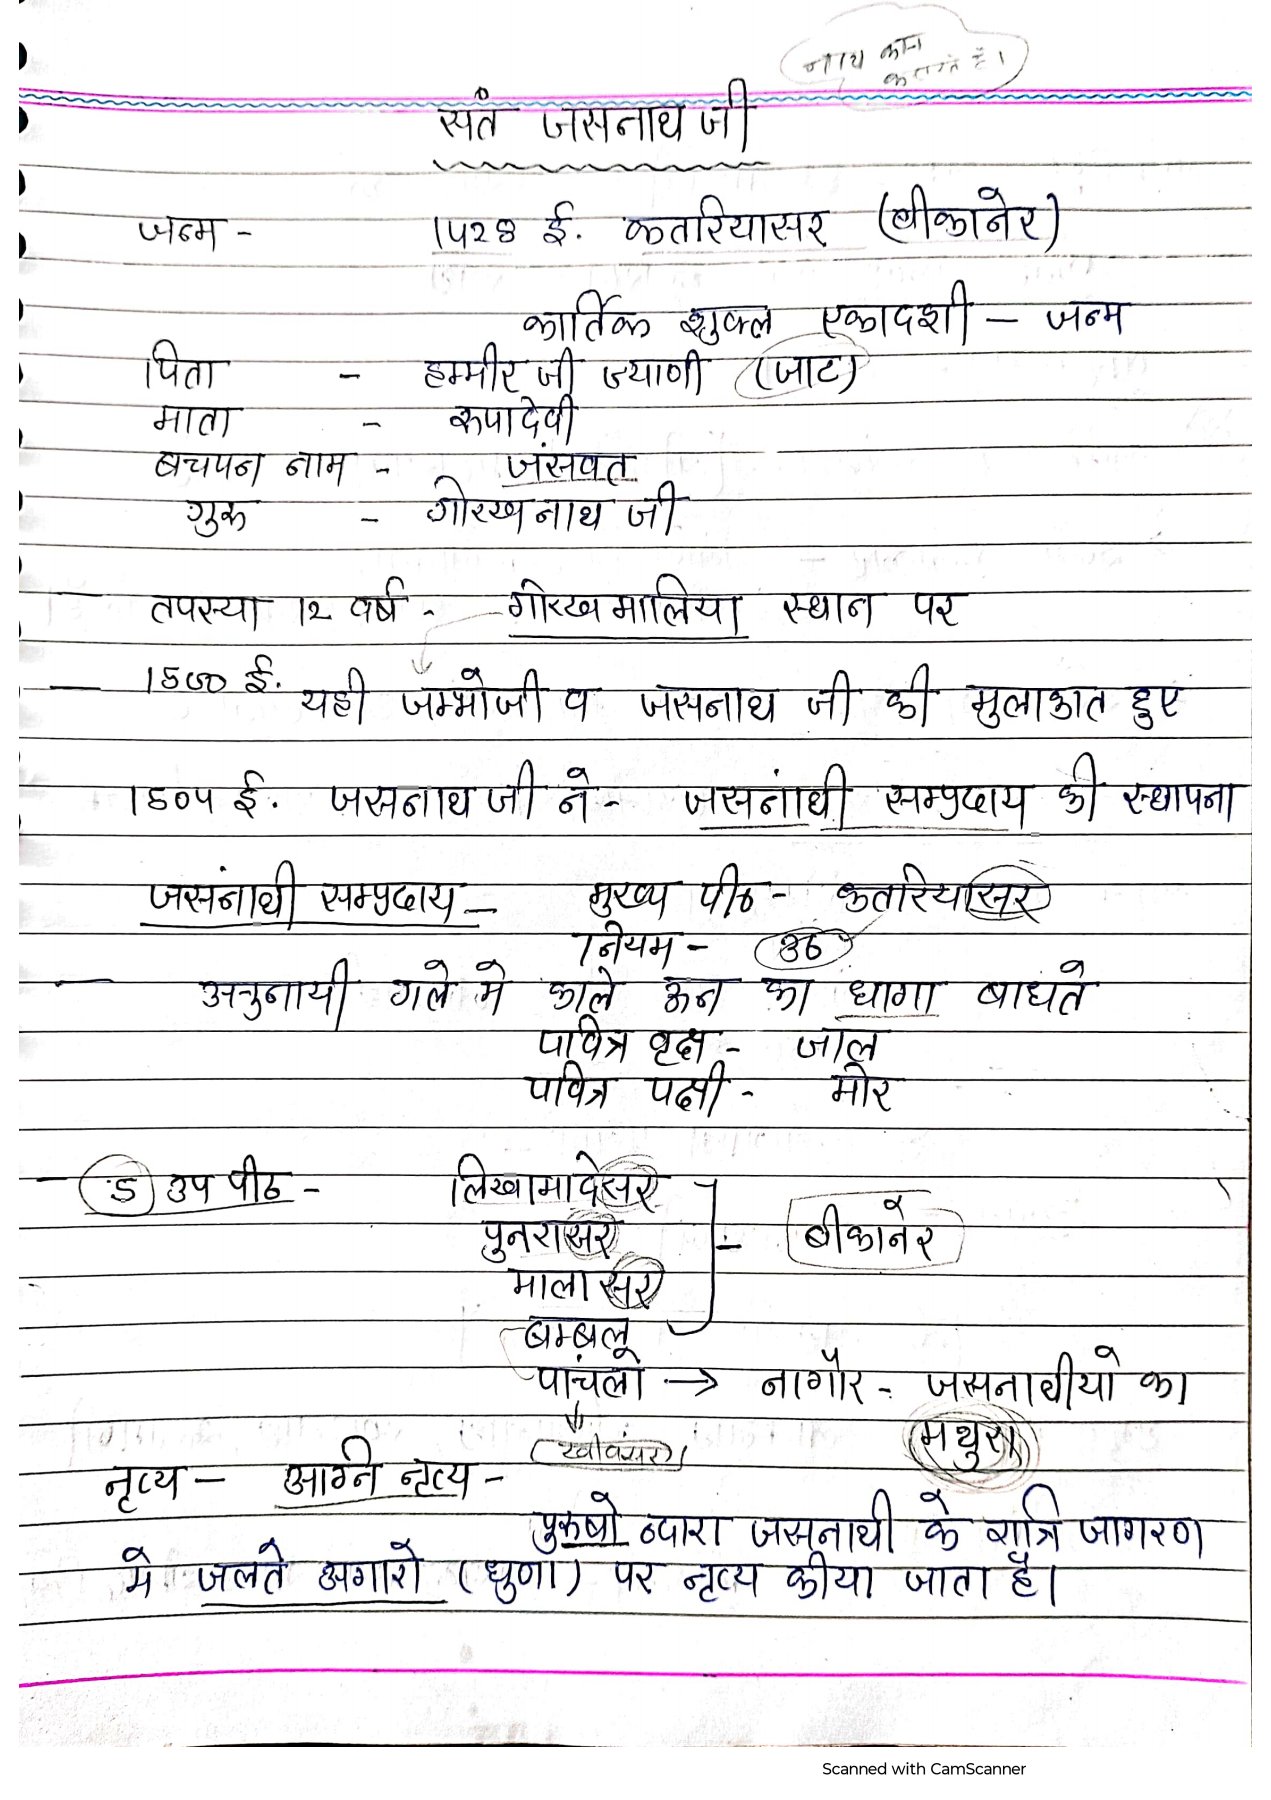 नाथ कान
कतरते है।
संत जसनाथ जी
जन्म - 1528 ई. कतरियासर (बीकानेर)
कार्तिक शुक्ल एकादशी - जन्म
पिता - हम्मीर जी ज्याणी (जाट)
माता - रूपादेवी
बचपन नाम - जसंवत
गुरू - गोरखनाथ जी
तपस्या 12 वर्ष - गोरखमालिया स्थान पर
1500 ई. यही जम्भोजी व जसनाथ जी की मुलाकात हुए
1504 ई. जसनाथ जी ने - जसनांथी सम्प्रदाय की स्थापना
जसनांथी सम्प्रदाय - मुख्य पीठ - कतरियासर
नियम - 36
अनुनायी गले मे काले ऊन का धागा बाधते
पवित्र वृक्ष - जाल
पवित्र पक्षी - मोर
5 उप पीठ - लिखामादेसर
पुनरासर - बीकानेर
मालासर
बम्बलू
पांचला → नागौर - जसनाथीयो का
मथुरा
खीवंसर
नृत्य - अग्नि नृत्य -
पुरूषो व्दारा जसनाथी के रात्रि जागरण
मे जलते अगारो (धुणा) पर नृत्य कीया जाता है।
Scanned with CamScanner